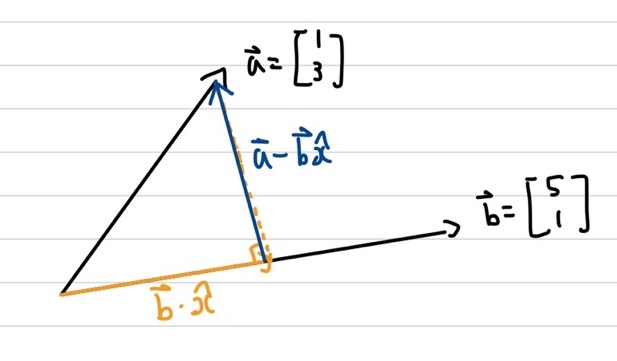 a⃗ = [1 3]
a⃗ - b⃗x̂
b⃗ = [5 1]
b⃗ · x̂